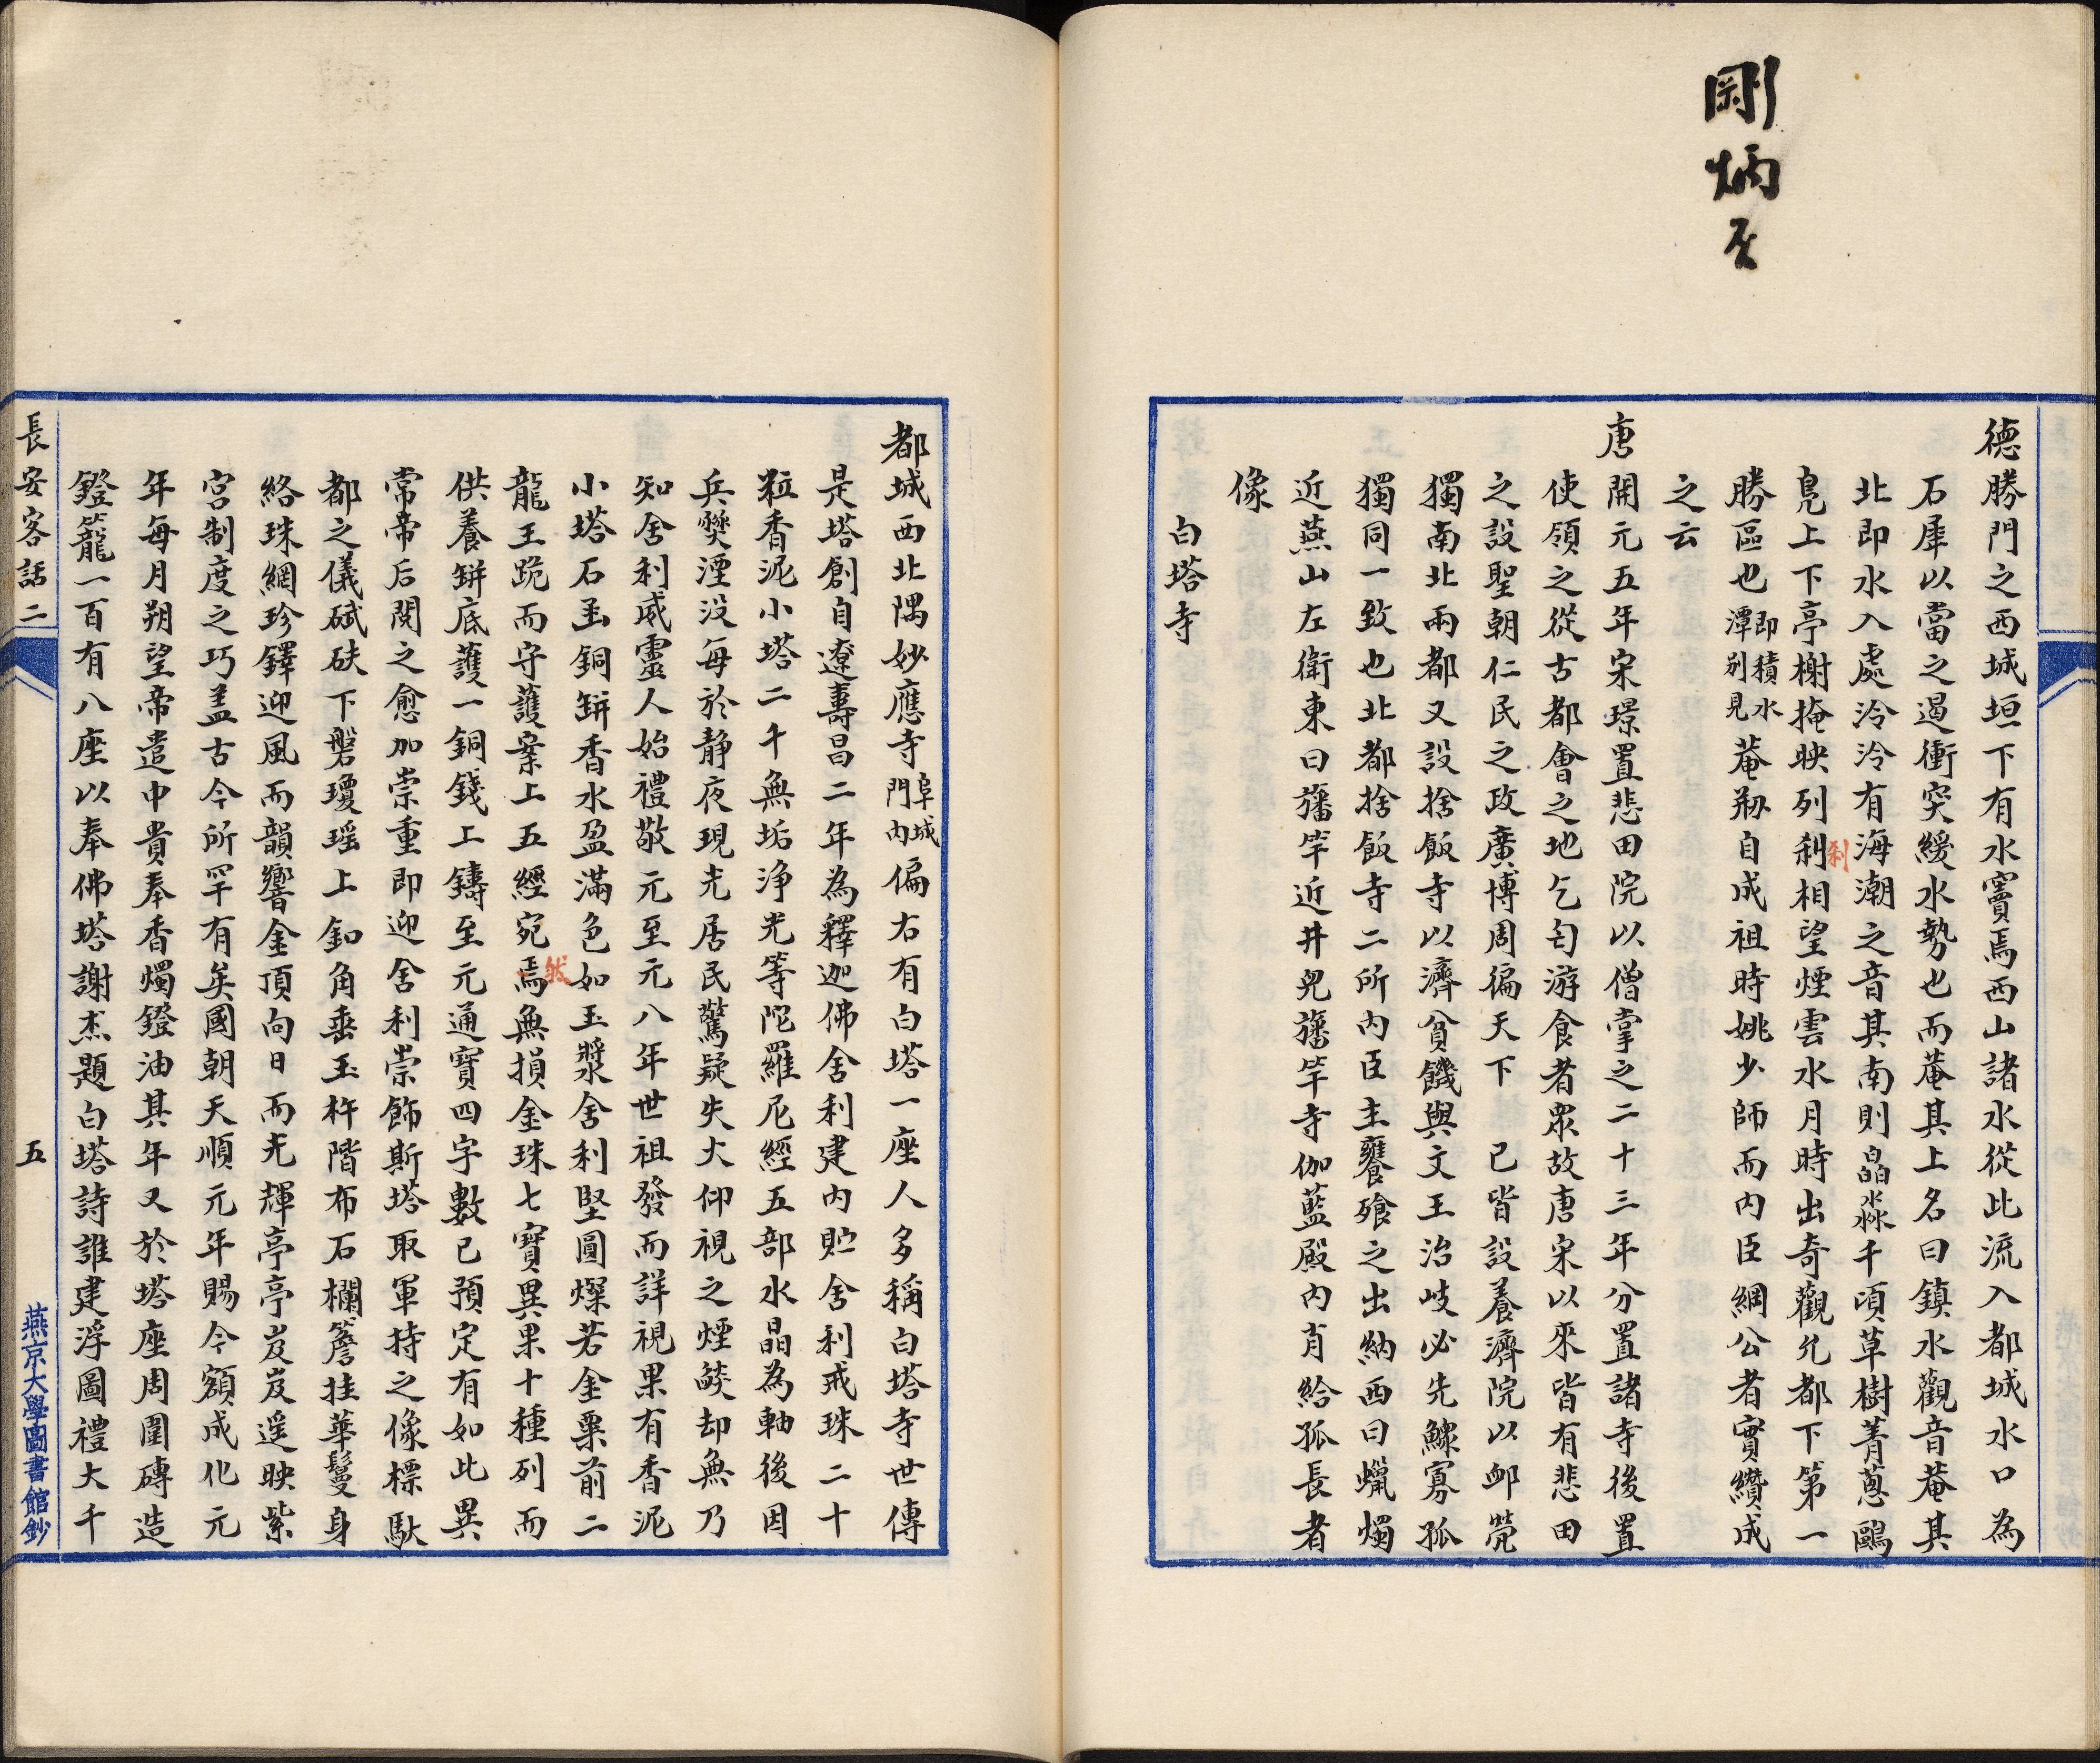 剛炳
德勝門之西城垣下有水竇焉西山諸水從此流入都城水口為
石犀以當之遏衝突緩水勢也而菴其上名曰鎮水觀音菴其
北即水入處泠泠有海潮之音其南則皛淼千頃草樹菁蔥鷗
鳧上下亭榭掩映列刹相望煙雲水月時出奇觀允都下第一
刹
勝區也即積水潭别見菴剏自成祖時姚少師而内臣綱公者實纘成
之云
唐開元五年宋璟置悲田院以僧掌之二十三年分置諸寺後置
使領之從古都會之地乞匄游食者眾故唐宋以來皆有悲田
之設聖朝仁民之政廣博周徧天下已皆設養濟院以卹煢
獨南北兩都又設捨飯寺以濟貧饑與文王治岐必先鰥寡孤
獨同一致也北都捨飯寺二所内臣主饔飱之出納西曰蠟燭
近燕山左衛東曰旛竿近井兒旛竿寺伽藍殿内肖給孤長者
像
白塔寺
都城西北隅妙應寺阜城門内偏右有白塔一座人多稱白塔寺世傳
是塔創自遼壽昌二年為釋迦佛舍利建内貯舍利戒珠二十
粒香泥小塔二千無垢淨光等陀羅尼經五部水晶為軸後因
兵燹湮没每於静夜現光居民驚疑失火仰視之煙燄却無乃
知舍利威靈人始禮敬元至元八年世祖發而詳視果有香泥
小塔石函銅缾香水盈滿色如玉漿舍利堅圓燦若金粟前二
龍王跪而守護案上五經宛焉無損金珠七寶異果十種列而
然
供養缾底護一銅錢上鑄至元通寶四字數已預定有如此異
常帝后閱之愈加崇重即迎舍利崇飾斯塔取軍持之像標馱
都之儀碔砆下磐瓊瑶上釦角垂玉杵階布石欄簷挂華鬘身
絡珠網珍鐸迎風而韻響金頂向日而光輝亭亭岌岌遥映紫
宫制度之巧盖古今所罕有矣國朝天順元年賜今額成化元
年每月朔望帝遣中貴奉香燭鐙油其年又於塔座周圍磚造
鐙籠一百有八座以奉佛塔謝杰題白塔詩誰建浮圖禮大千
長安客話二
五
燕京大學圖書館鈔